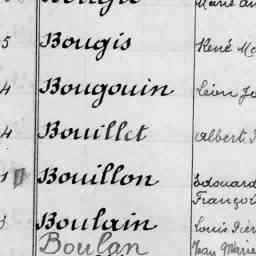 5 Bougis René
4 Bougouin Léon
4 Bouillet Albert
1 Bouillon Edouard
François
Boulain Louis
Boulan Jean Marie